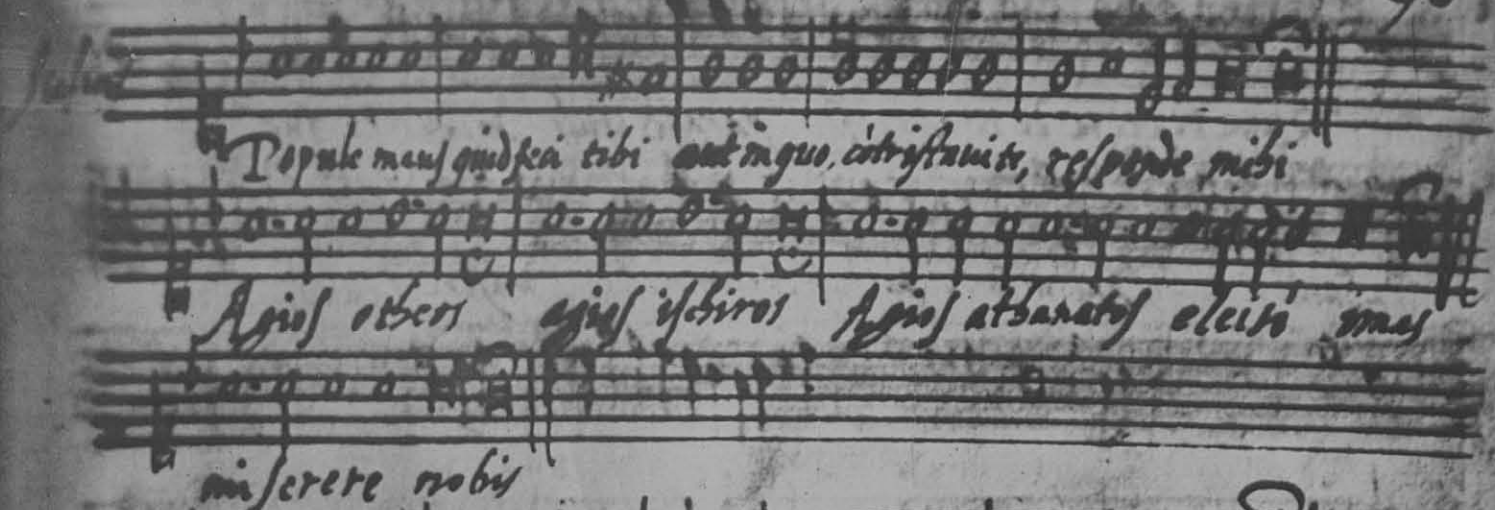 Popule meus quid feci tibi aut in quo, cōtristavi te, responde mihi
Agios otheos agios ischiros Agios athanatos eleisō imas
miserere nobis